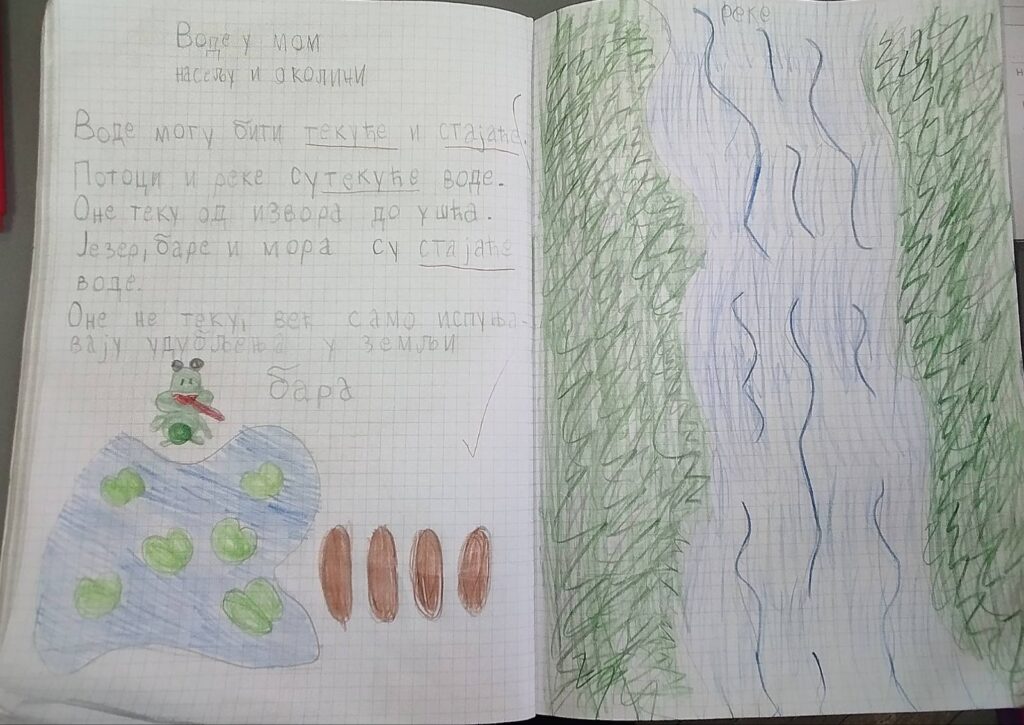 Воде у мом
насељу и околини
Воде могу бити текуће и стајаће.
Потоци и реке су текуће воде.
Оне теку од извора до ушћа.
Језер, баре и мора су стајаће
воде.
Оне не теку, већ само испуња-
вају удубљења у земљи
бара
реке